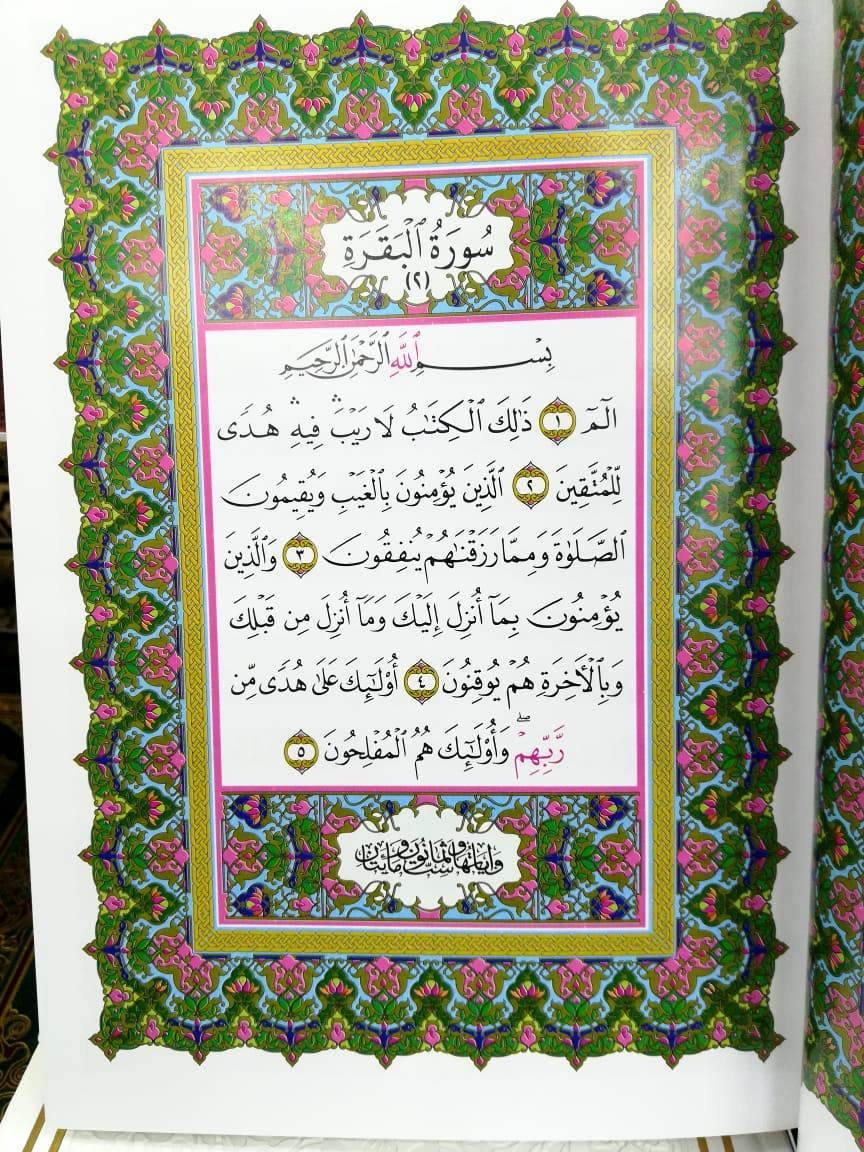 سُورَةُ ٱلْبَقَرَةِ
(٢)
بِسْمِ ٱللَّهِ ٱلرَّحْمَٰنِ ٱلرَّحِيمِ
الٓمٓ ١ ذَٰلِكَ ٱلْكِتَٰبُ لَا رَيْبَۛ فِيهِۛ هُدًى
لِّلْمُتَّقِينَ ٢ ٱلَّذِينَ يُؤْمِنُونَ بِٱلْغَيْبِ وَيُقِيمُونَ
ٱلصَّلَوٰةَ وَمِمَّا رَزَقْنَٰهُمْ يُنفِقُونَ ٣ وَٱلَّذِينَ
يُؤْمِنُونَ بِمَآ أُنزِلَ إِلَيْكَ وَمَآ أُنزِلَ مِن قَبْلِكَ
وَبِٱلْأَخِرَةِ هُمْ يُوقِنُونَ ٤ أُوْلَٰٓئِكَ عَلَىٰ هُدًى مِّن
رَّبِّهِمْۖ وَأُوْلَٰٓئِكَ هُمُ ٱلْمُفْلِحُونَ ٥
وآياتها ست وثمانون ومايتان